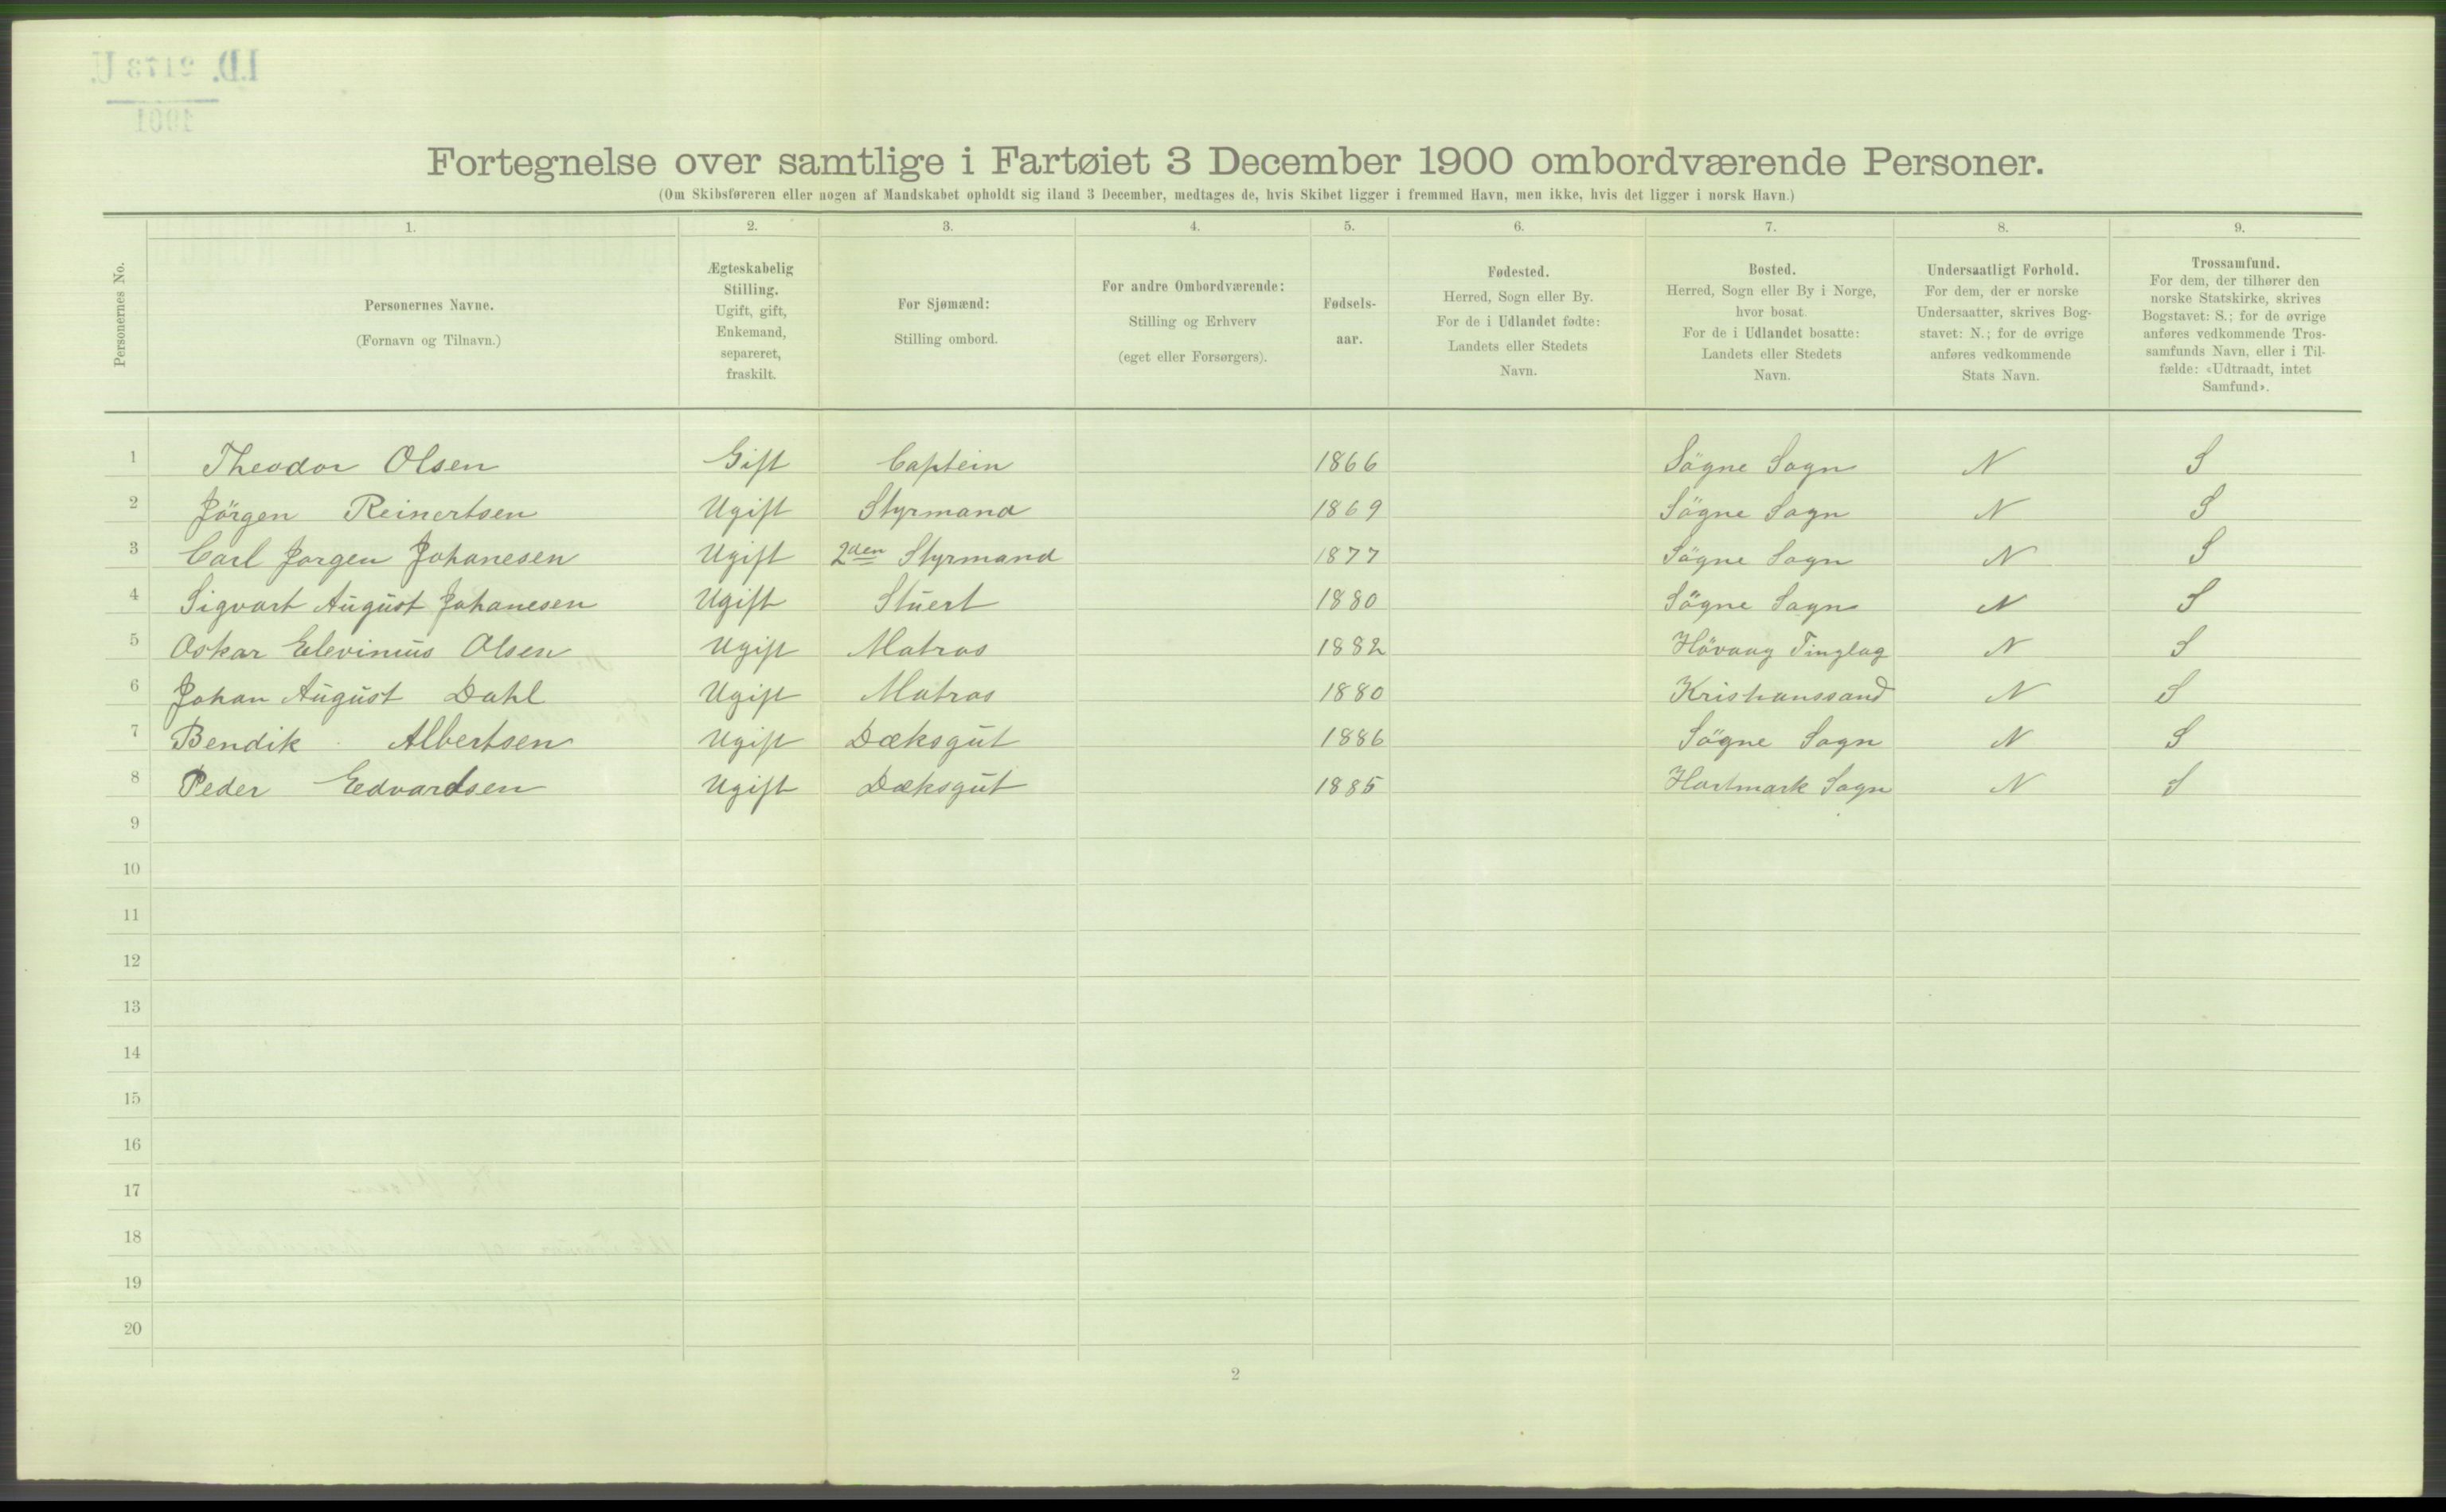 I.D. 2173 U.
1901
Fortegnelse over samtlige i Fartøiet 3 December 1900 ombordværende Personer.
(Om Skibsføreren eller nogen af Mandskabet opholdt sig iland 3 December, medtages de, hvis Skibet ligger i fremmed Havn, men ikke, hvis det ligger i norsk Havn.)
Personernes No.
1. 2. 3. 4. 5. 6. 7. 8. 9.
Personernes Navne.
(Fornavn og Tilnavn.)
Ægteskabelig
Stilling.
Ugift, gift,
Enkemand,
separeret,
fraskilt.
For Sjømænd:
Stilling ombord.
For andre Ombordværende:
Stilling og Erhverv
(eget eller Forsørgers).
Fødsels-
aar.
Fødested.
Herred, Sogn eller By.
For de i Udlandet fødte:
Landets eller Stedets
Navn.
Bosted.
Herred, Sogn eller By i Norge,
hvor bosat.
For de i Udlandet bosatte:
Landets eller Stedets
Navn.
Undersaatligt Forhold.
For dem, der er norske
Undersaatter, skrives Bog-
stavet: N.; for de øvrige
anføres vedkommende
Stats Navn.
Trossamfund.
For dem, der tilhører den
norske Statskirke, skrives
Bogstavet: S.; for de øvrige
anføres vedkommende Tros-
samfunds Navn, eller i Til-
fælde: «Udtraadt, intet
Samfund».
1 Theodor Olsen Gift Captein 1866 Sögne Sogn N S
2 Jörgen Reinertsen Ugift Styrmand 1869 Sögne Sogn N S
3 Carl Jorgen Johanesen Ugift 2den Styrmand 1877 Sögne Sogn N S
4 Sigvart August Johanesen Ugift Stuert 1880 Sögne Sogn N S
5 Oskar Elevinius Olsen Ugift Matros 1882 Hövaag Tinglag N S
6 Johan August Dahl Ugift Matros 1880 Kristianssand N S
7 Bendik Albertsen Ugift Dæksgut 1886 Sögne Sogn N S
8 Peder Eedvardsen Ugift Dæksgut 1885 Hartmark Sogn N S
9
10
11
12
13
14
15
16
17
18
19
20
2